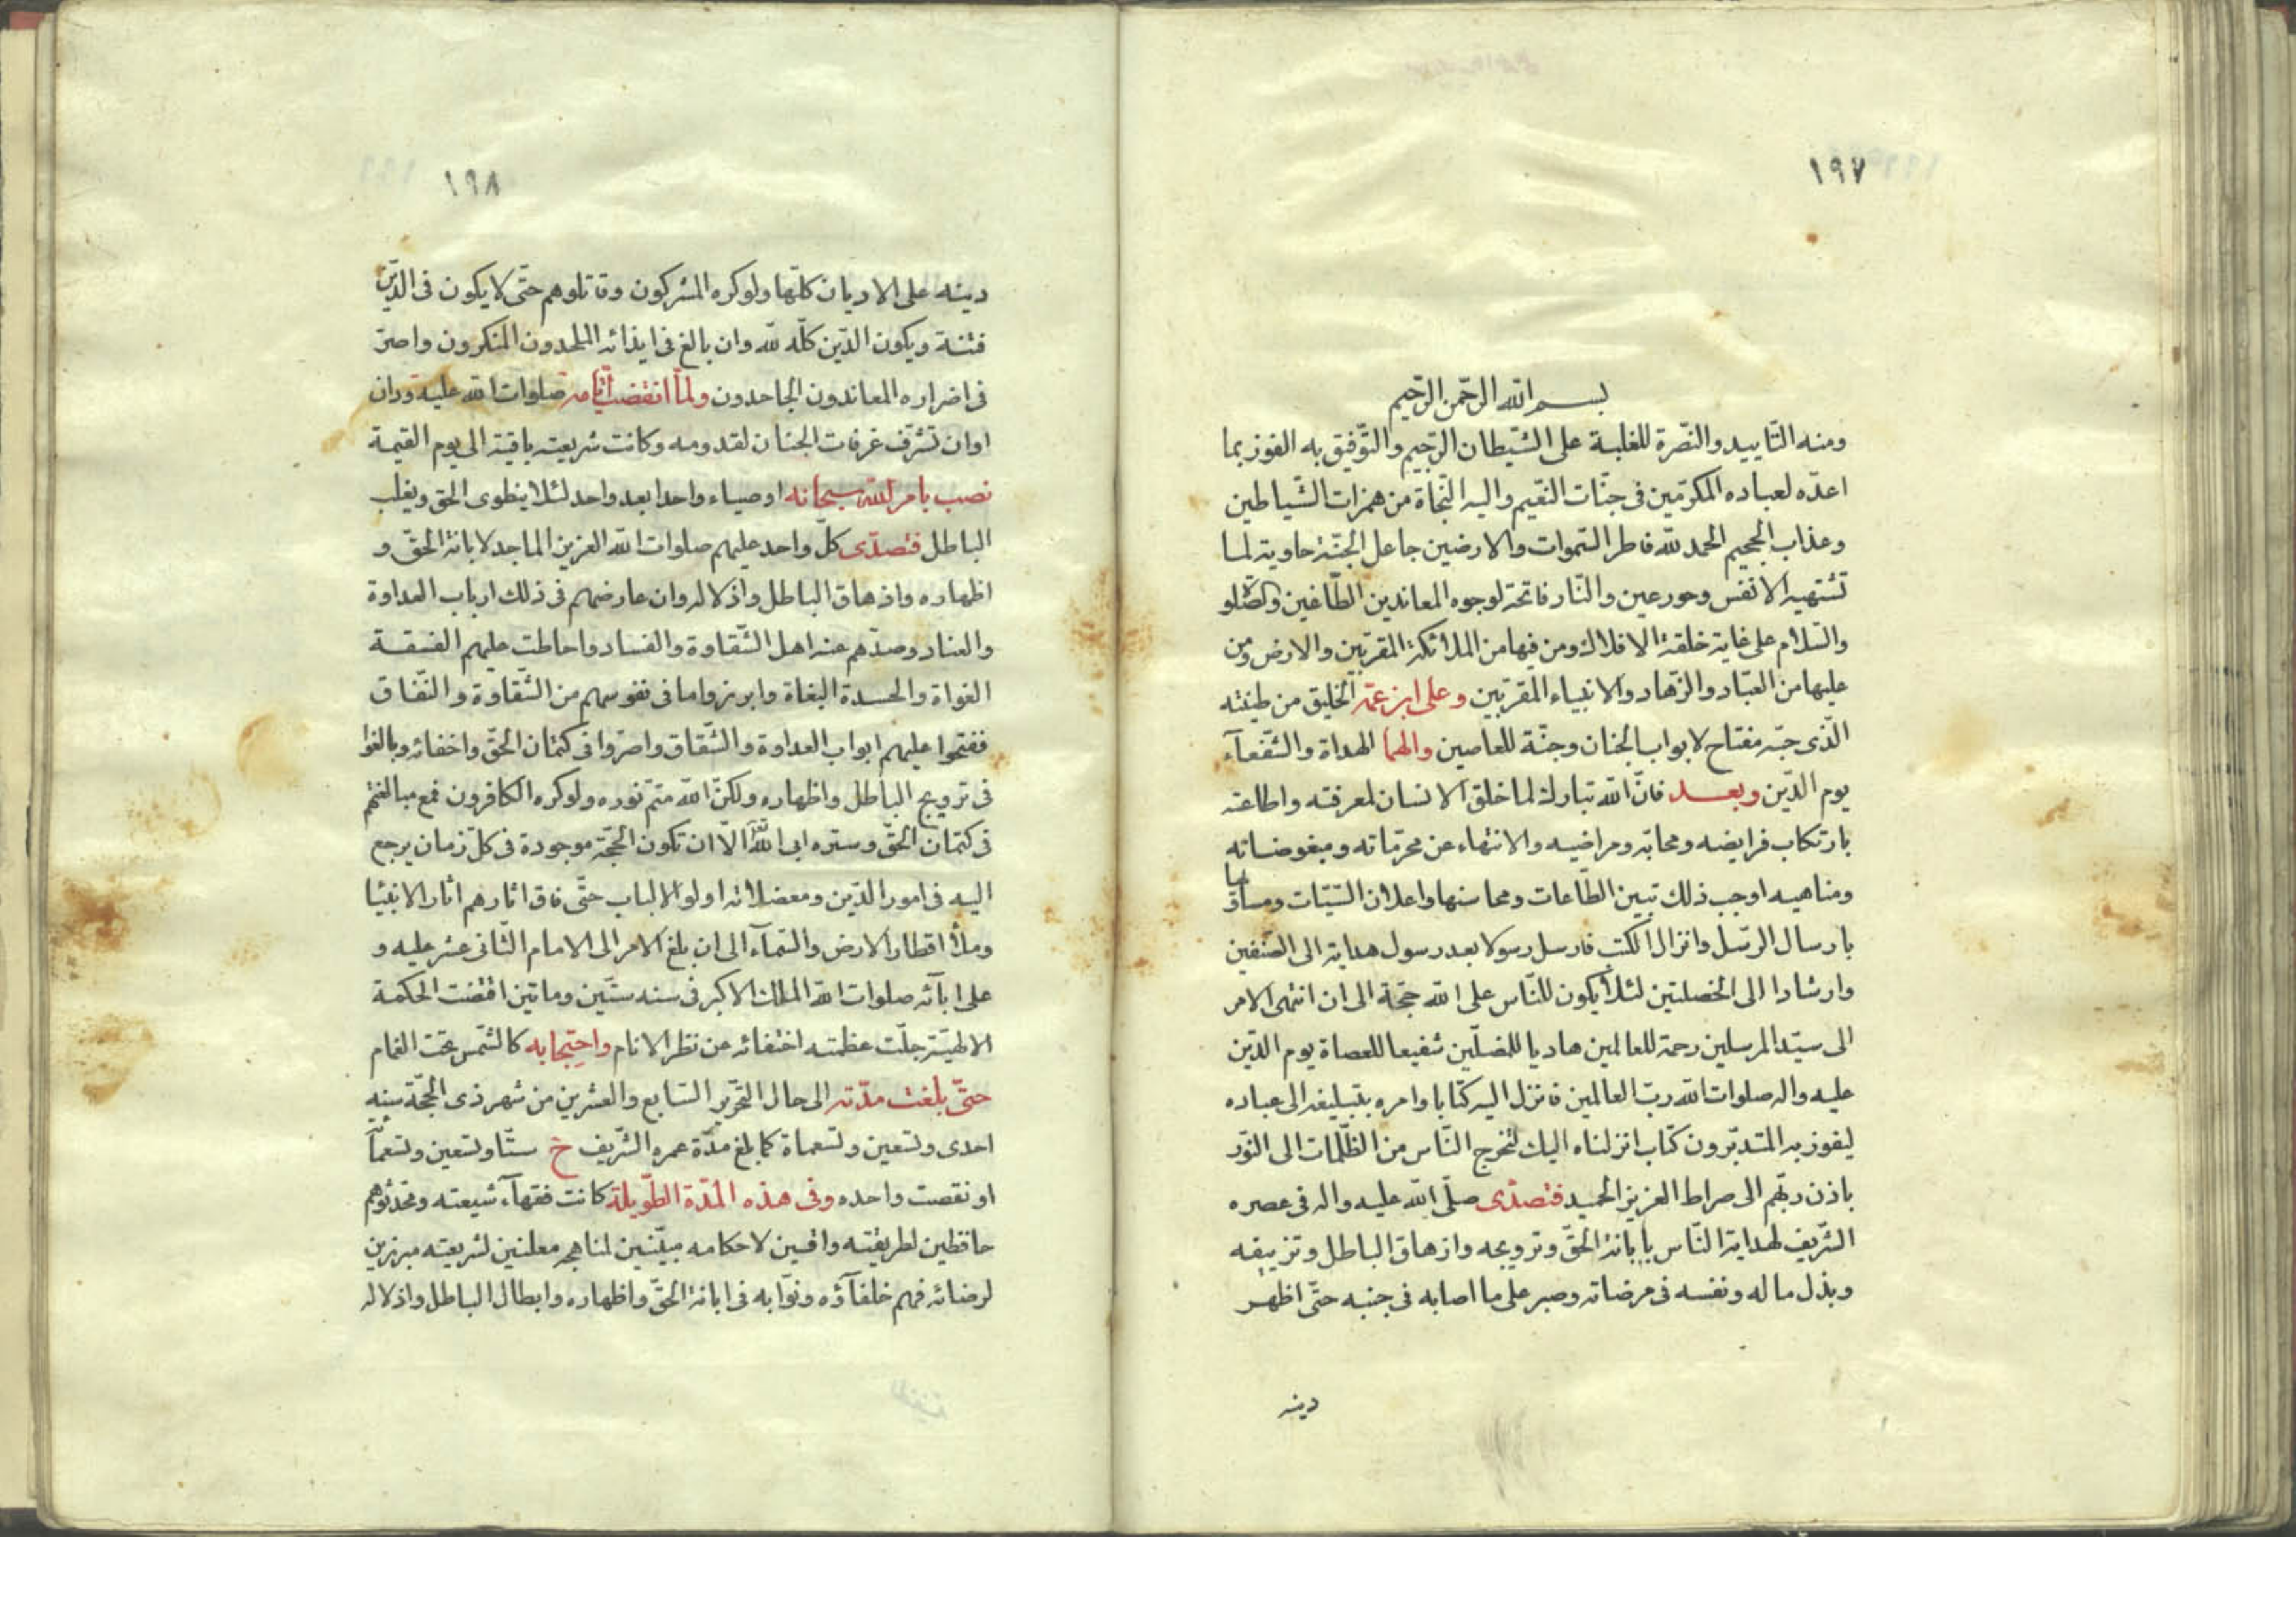 ١٩٧
بسم الله الرحمن الرحيم
ومنه التّاييد والنّصرة للغلبة على الشّيطان الرّجيم والتّوفيق به الفوز بما
اعدّه لعباده المكرّمين فى جنّات النّعيم واليه النّجاة من همزات الشّياطين
وعذاب الجحيم الحمد للّه فاطر السّموات والارضين جاعل الجنّة حاوية لما
تشتهيه الانفس وحور عين والنّار فاتحة لوجوه المعاندين الطّاغين والصّلو
والسّلام على غاية خلقة الافلاك ومن فيها من الملائكة المقرّبين والارض ومن
عليها من العبّاد والزّهاد والانبياء المقرّبين وعلى ابن عمّه الخليق من طينته
الّذى حبّه مفتاح لابواب الجنان وجنّة للعاصين والهما الهداة والشّفعآء
يوم الدّين وبعد فانّ اللّه تبارك لما خلق الانسان لمعرفته واطاعته
بارتكاب فرايضه ومحابّه ومراضيه والانتهاء عن محرّماته ومبغوضاته
ومناهيه اوجب ذلك تبيين الطّاعات ومحاسنها واعلان السّيّئات ومساويها
بارسال الرّسل وانزال الكتب فارسل رسولا بعد رسول هداية الى الصّنفين
وارشادا الى الخصلتين لئلّا يكون للنّاس على اللّه حجّة الى ان انتهى الامر
الى سيّد المرسلين رحمة للعالمين هاديا للمضلّين شفيعا للعصاة يوم الدّين
عليه واله صلوات اللّه ربّ العالمين فانزل اليه كتابا وامره بتبليغه الى عباده
ليفوز به المتدبّرون كتاب انزلناه اليك لتخرج النّاس من الظّلمات الى النّور
باذن ربّهم الى صراط العزيز الحميد فتصدّى صلّى اللّه عليه واله فى عصره
الشّريف لهداية النّاس بابانة الحقّ وترويجه وازهاق الباطل وتزييفه
وبذل ماله ونفسه فى مرضاته وصبر على ما اصابه فى جنبه حتّى اظهر
دينه
١٩٨
دينه على الاديان كلّها ولو كره المشركون وقاتلوهم حتّى لا يكون فى الدّين
فتنة ويكون الدّين كلّه للّه وان بالغ فى ايذائه الملحدون المنكرون واصرّ
فى اضراره المعاندون الجاحدون ولمّا انقضت ايّامه صلوات اللّه عليه وران
اوان تشرّف غرفات الجنان لقدومه وكانت شريعته باقية الى يوم القيمة
نصب بامر اللّه سبحانه اوصياء واحدا بعد واحد لئلا ينطوى الحق ويغلب
الباطل فتصدّى كلّ واحد عليهم صلوات اللّه العزيز الماجد لابانة الحقّ و
اظهاره واذهاق الباطل واذلاله وان عارضهم فى ذلك ارباب العداوة
والعناد وصدّهم عنه اهل الشّقاوة والفساد واحاطت عليهم الفسقة
الغواة والحسدة البغاة وابرزوا ما فى نفوسهم من الشّقاوة والنّفاق
ففتحوا عليهم ابواب العداوة والشّقاق واصرّوا فى كتمان الحقّ واخفائه وبالغوا
فى ترويج الباطل واظهاره ولكنّ اللّه متمّ نوره ولو كره الكافرون فمع مبالغتهم
فى كتمان الحقّ وستره ابى اللّه الّا ان تكون الحجّة موجودة فى كلّ زمان يرجع
اليه فى امور الدّين ومعضلاته اولو الالباب حتّى فاق اثارهم اثار الانبيا
وملأ اقطار الارض والسّمآء الى ان بلغ الامر الى الامام الثّانى عشر عليه و
على ابآئه صلوات اللّه الملك الاكبر فى سنه ستّين وماتين اقتضت الحكمة
الالهيّة جلّت عظمته اختفائه عن نظر الانام واحتجابه كالشّمس تحت الغمام
حتّى بلغت مدّته الى حال التّحرير السّابع والعشرين من شهر ذى الحجّة سنه
احدى وتسعين وتسعماة كما بلغ مدّة عمره الشّريف خ ستّا وتسعين وتسعمآ
او نقصت واحده وفى هذه المدّة الطّويلة كانت فقهآء شيعته ومحدّثوهم
حافظين لطريقته واقسين لاحكامه مبيّنين لمناهجه معلنين لشريعته مبرزين
لرضائه فهم خلفآؤه ونوّابه فى ابانة الحقّ واظهاره وابطال الباطل واذلاله